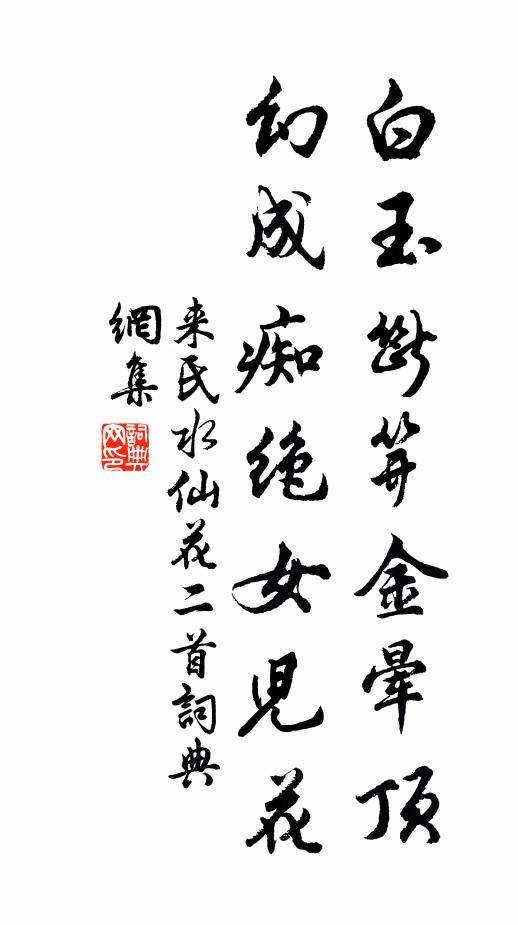 白玉断笄金晕顶
幻成痴绝女児花
来氏水仙花二首詞典
網集
詞典
网印